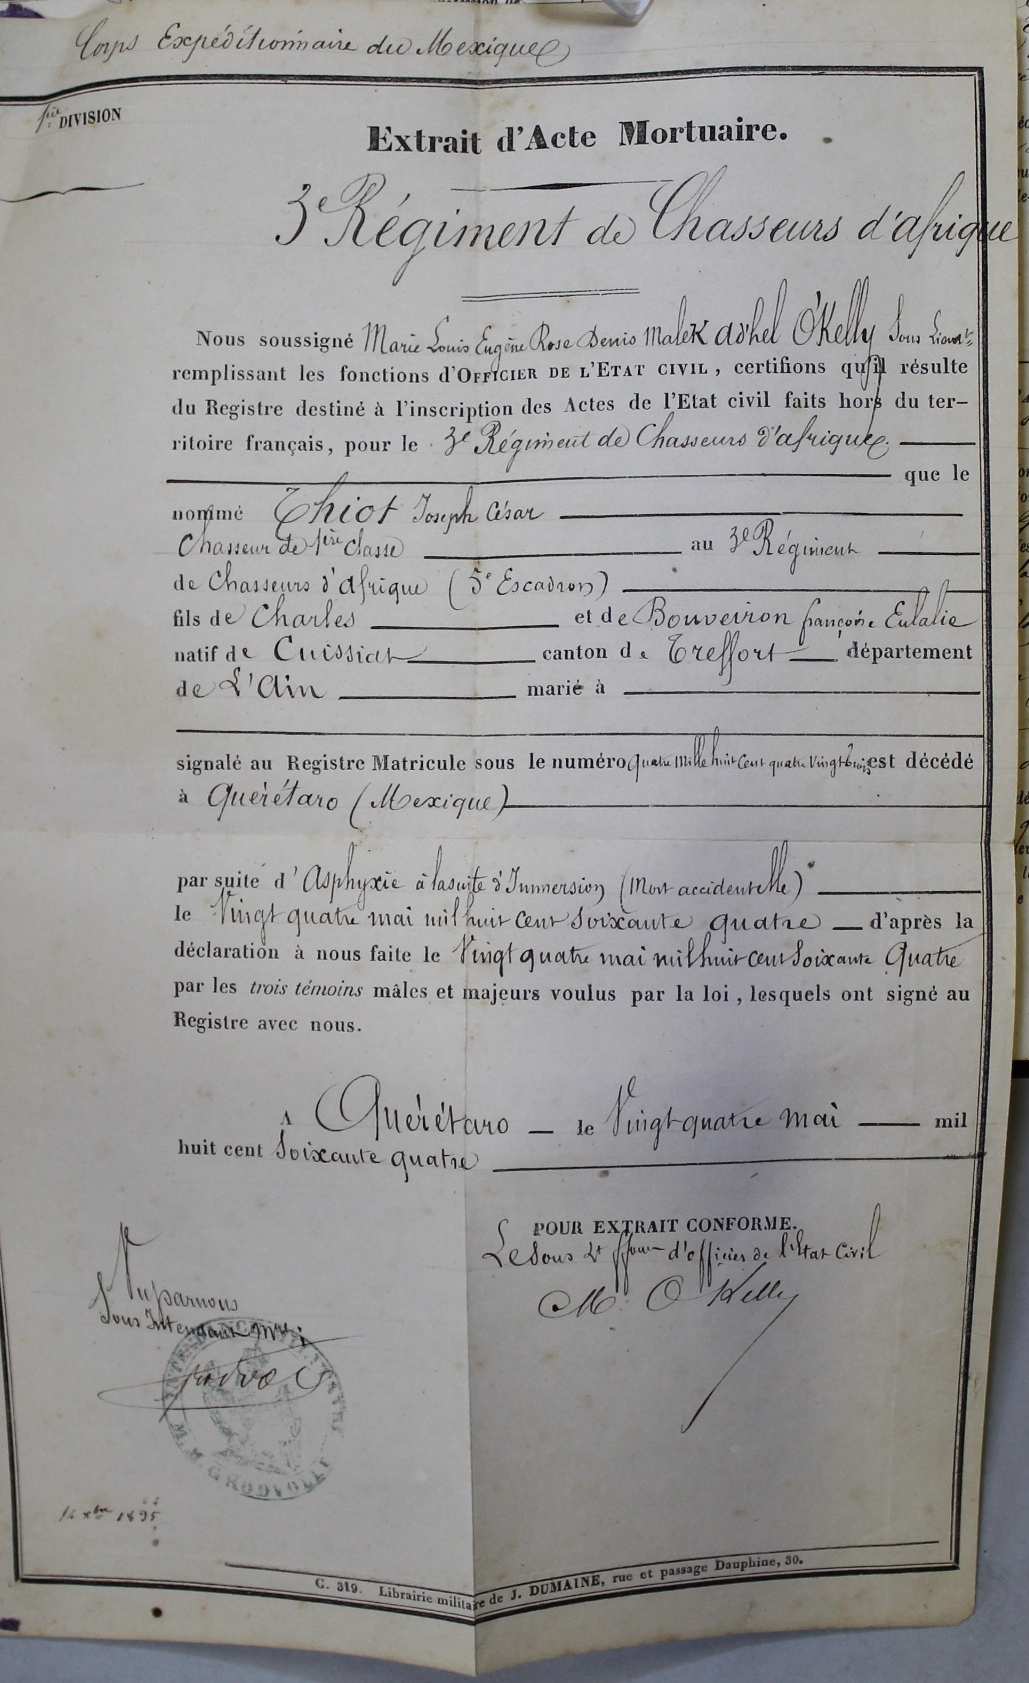 Corps Expéditionnaire du Mexique
1ère DIVISION
Extrait d'Acte Mortuaire.
3e Régiment de Chasseurs d'afrique
Nous soussigné Marie Louis Eugène Rose Denis Malek adhel O'Kelly Sous Lieutt
remplissant les fonctions d'OFFICIER DE L'ETAT CIVIL, certifions qu'il résulte
du Registre destiné à l'inscription des Actes de l'Etat civil faits hors du ter-
ritoire français, pour le 3e Régiment de Chasseurs d'afrique
que le
nommé Thiot Joseph César
Chasseur de 1ère classe au 3e Régiment
de Chasseurs d'afrique (5e Escadron)
fils de Charles et de Bouveiron françoise Eulalie
natif de Cuissiat canton de Treffort département
de L'Ain marié à
signalé au Registre Matricule sous le numéro quatre mille huit cent quatre vingt trois est décédé
à Quérétaro (Mexique)
par suite d'Asphyxie à la suite d'Immersion (Mort accidentelle)
le Vingt quatre mai mil huit cent soixante quatre d'après la
déclaration à nous faite le Vingt quatre mai mil huit cent soixante Quatre
par les trois témoins mâles et majeurs voulus par la loi, lesquels ont signé au
Registre avec nous.
A Quérétaro le Vingt quatre mai mil
huit cent soixante quatre
POUR EXTRAIT CONFORME.
Le Sous Lt ffons d'officier de l'Etat Civil
M. O'Kelly
Vu par nous
Sous Intendant Mre
INTENDANCE MILITAIRE
14 xbre 1895
C. 319. Librairie militaire de J. DUMAINE, rue et passage Dauphine, 30.